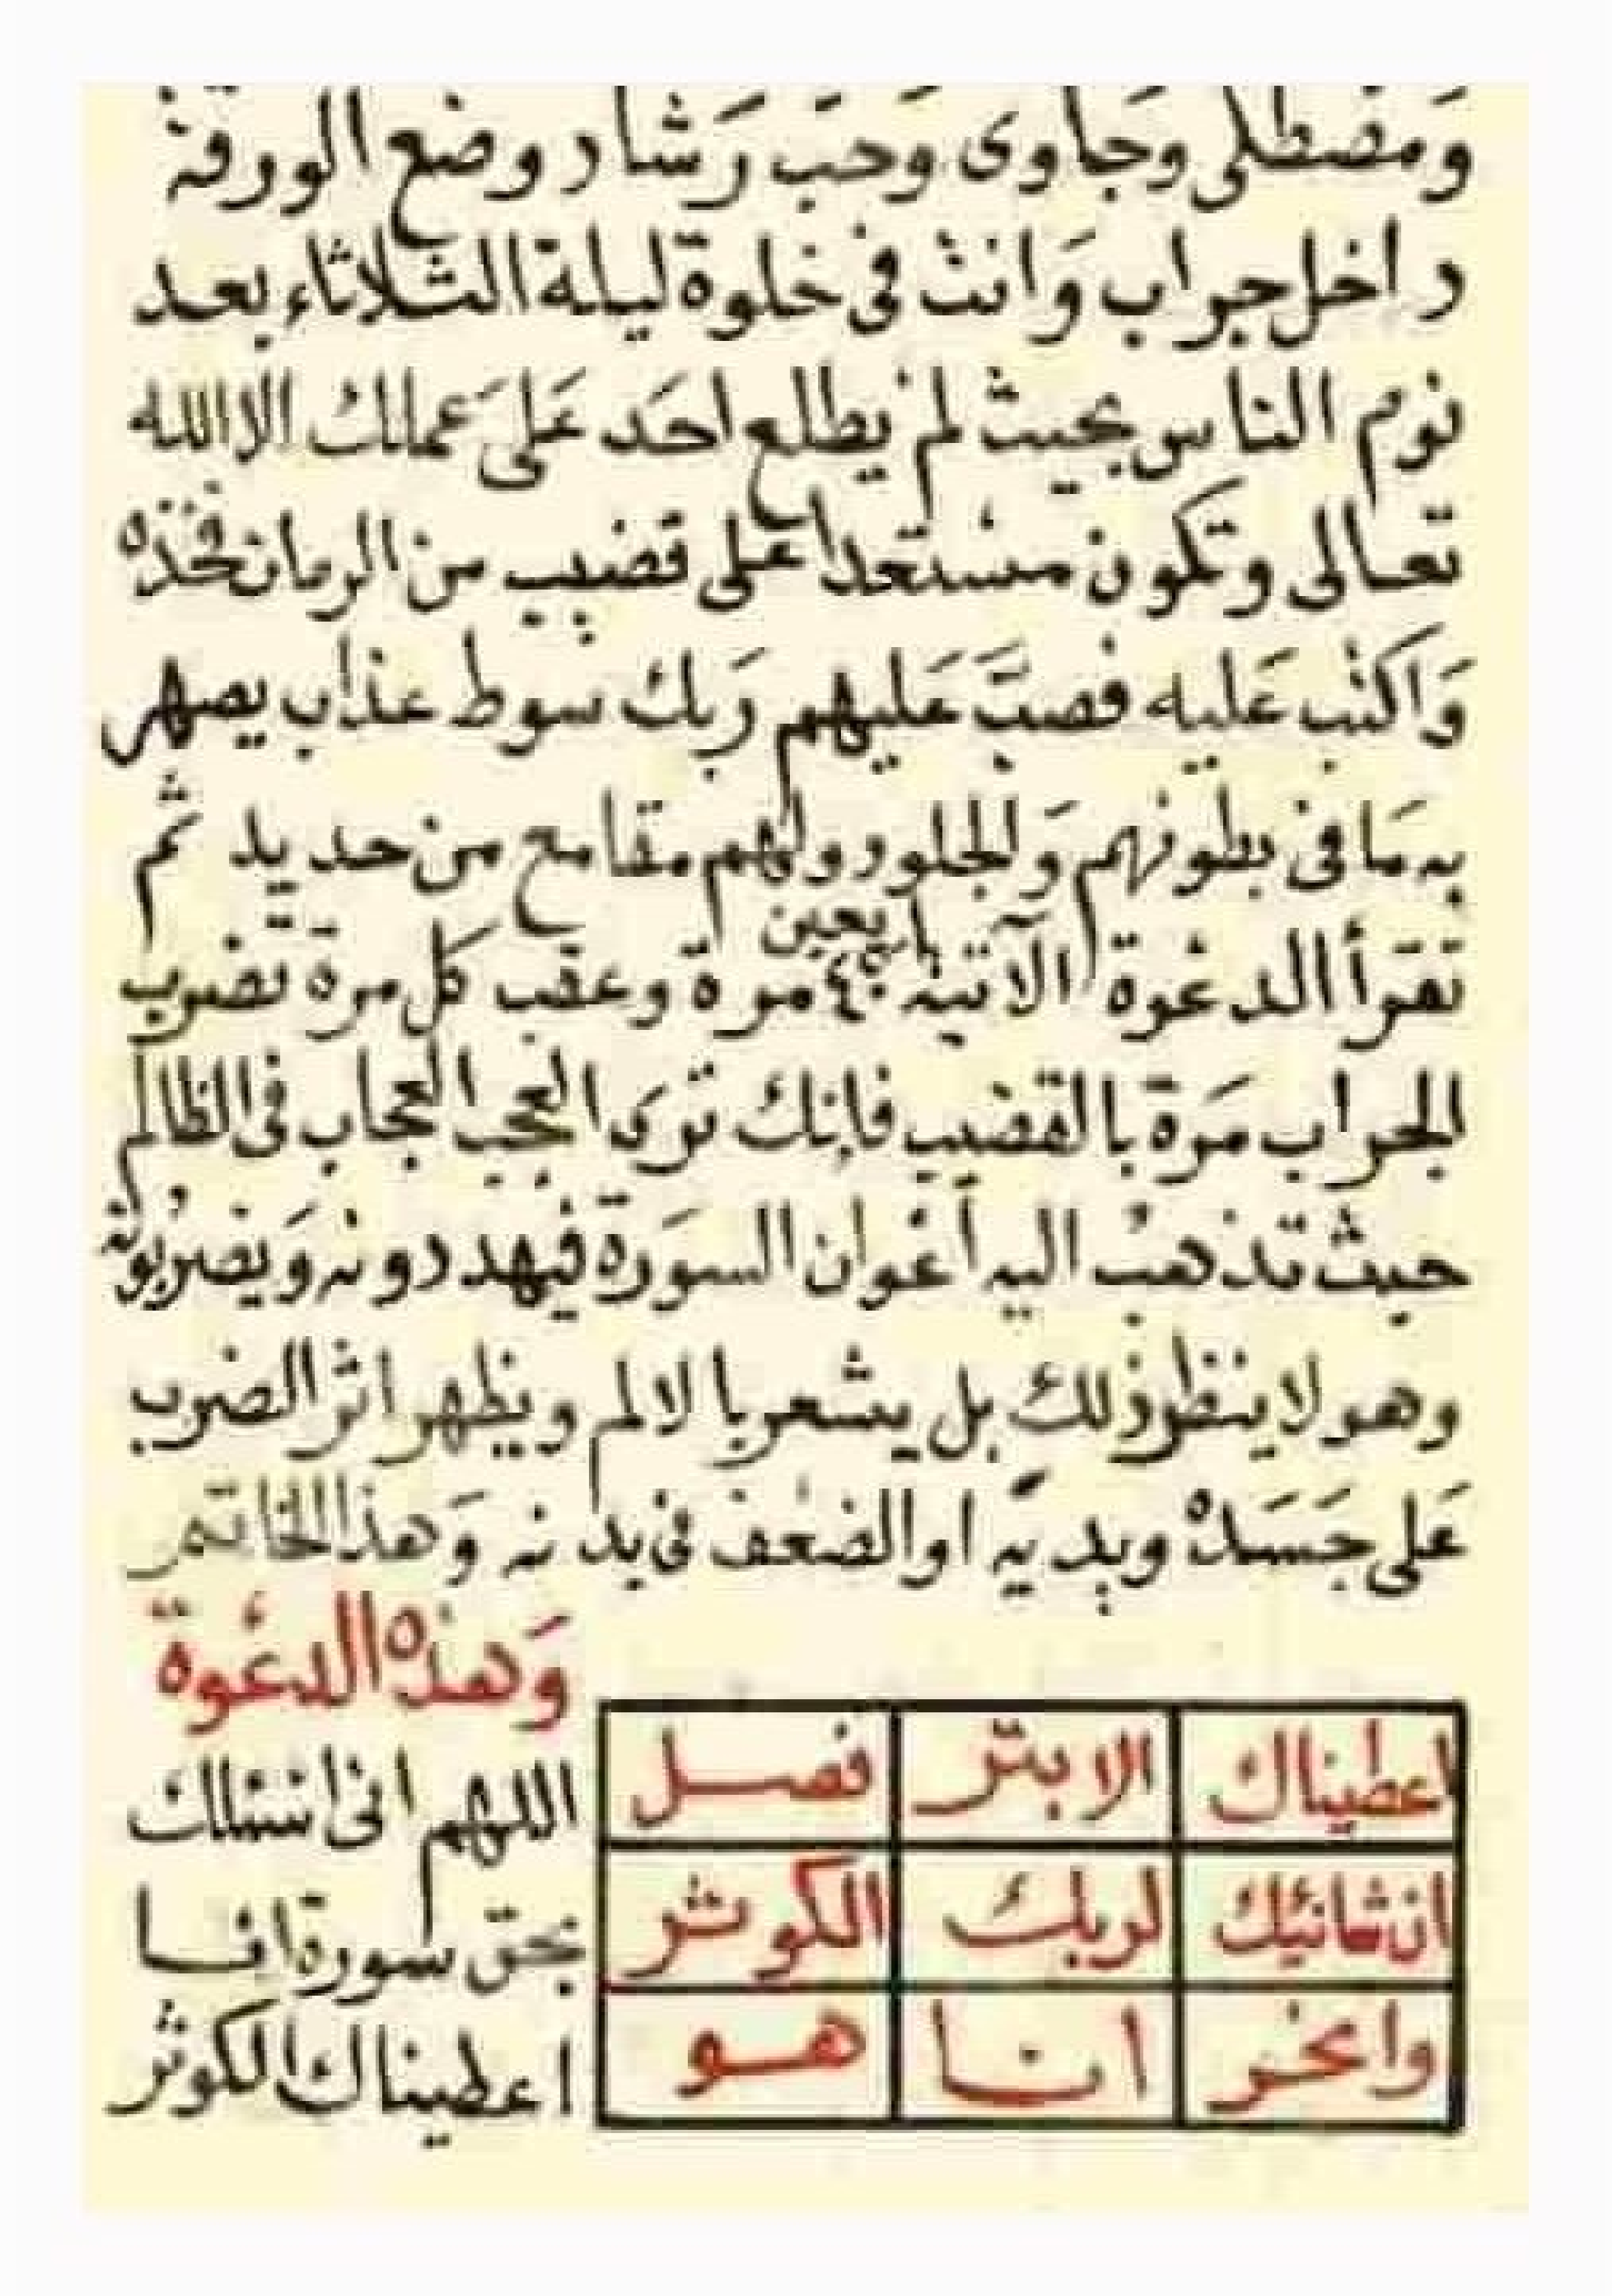 وَمصطلى وجَاوى وَحبّ رَشاد وضع الورقة
داخل جراب وَانت فى خلوة ليلة الثلاثاء بعد
نوم الناس بحيث لم يطلع احَد عَلى عَملك الا الله
تعالى وتكون مستعدا على قضيب من الرمان فخذه
وَاكتب عَليه فصبَّ عَليهم رَبك سوط عذاب يصهر
به مَا فى بطونهم وَالجلود ولهم مقامع من حديد ثم
تقرأ الدعوة الآتيه ٤٠ مرة وعقب كل مرة تضرب
باربعين
الجراب مَرة بالقضيب فانك ترى العجب العجاب فى الظالم
حيث تذهب اليه أعوان السوَرة فيهددونه وَيضربُونه
وهو لا ينظر ذلك بل يشعر با لالم ويظهر اثر الضرب
عَلى جَسَده ويديه او الضعف فى بدنه وَهذا الخاتم
وَهذه الدعوة
اللهم انى اسئلك
بحق سورة انا
اعطيناك الكوثر
اعطيناك الابتر فصل
ان شانئك لربك الكوثر
وانحر انا هو